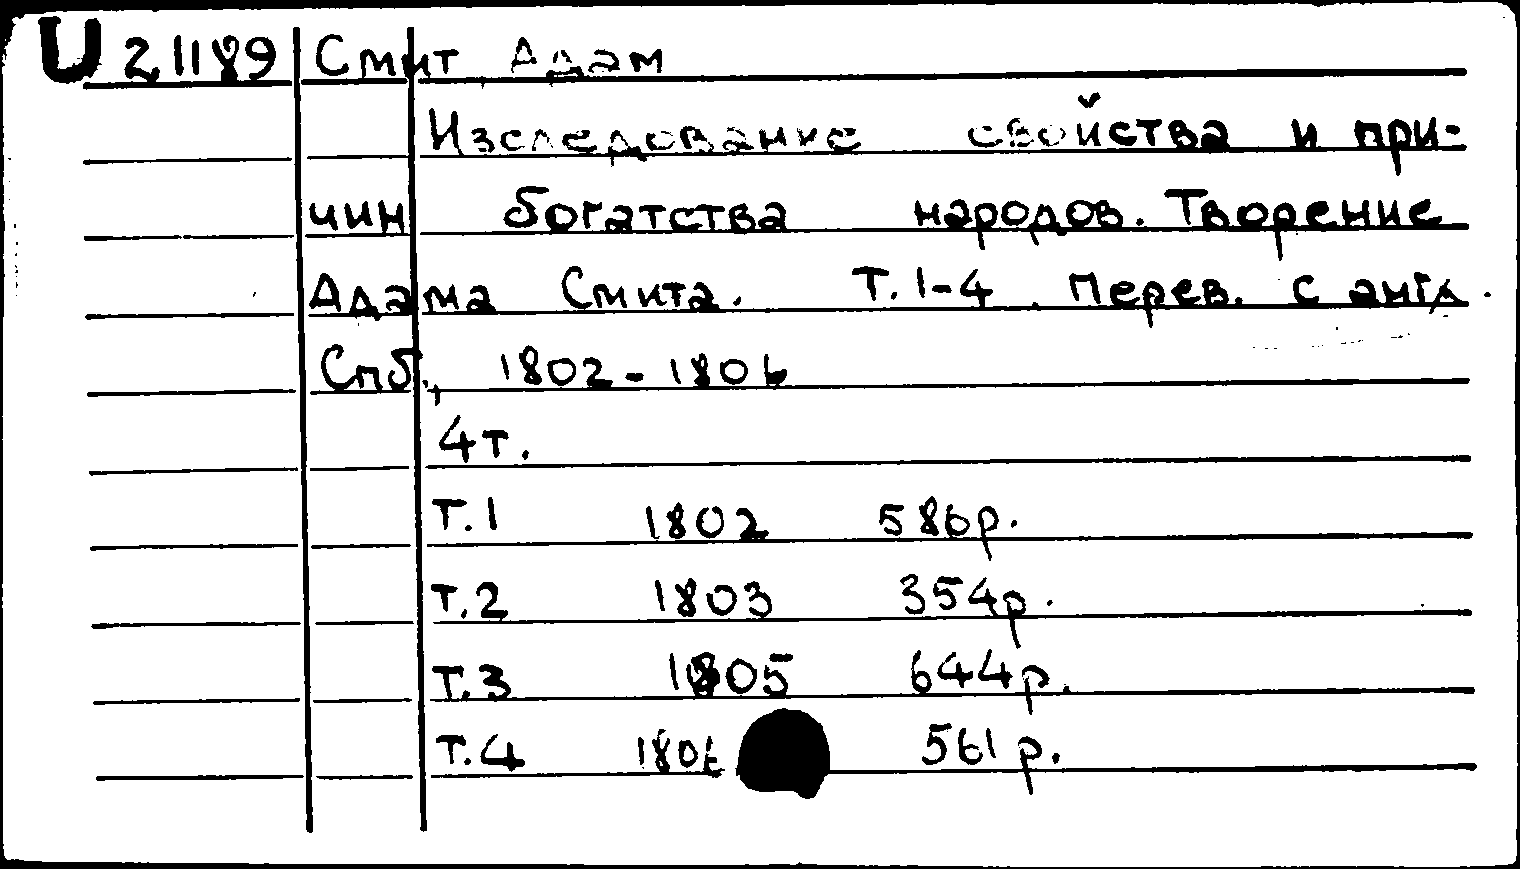 U 21189 Смит, Адам
Изследование свойства и при-
чин богатства народов. Творение
Адама Смита. Т. 1-4. Перев. с англ.
Спб., 1802-1806
4т.
Т.1 1802 586р.
Т.2 1803 354р.
Т.3 1805 644р.
Т.4 1806 561р.